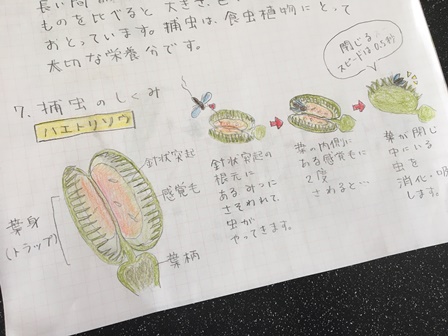 ものを比べると、大きさ、
おとっています。捕虫は、食虫植物にとって
大切な栄養分です。
7. 捕虫のしくみ
ハエトリソウ
針状突起
感覚毛
葉身
(トラップ)
葉柄
針状突起の
根元に
あるみつに
さそわれて
虫が
やってきます。
葉の内側に
ある感覚毛に
2度
さわると…
閉じる
スピードは0.5秒
葉が閉じ
中にいる
虫を
消化・吸
します。